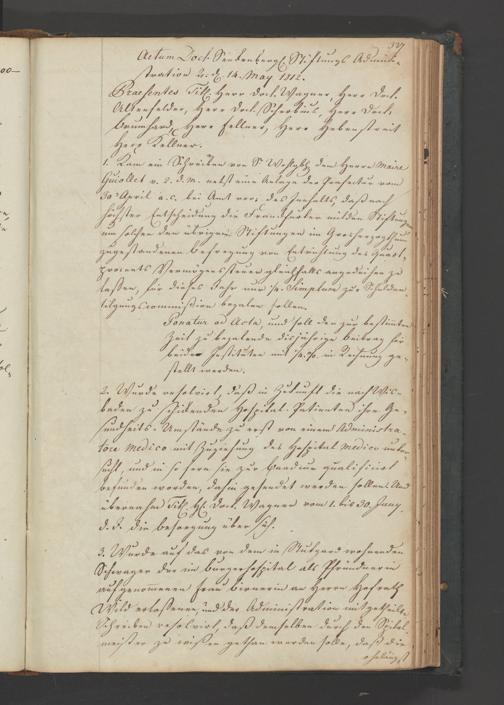 327
Actum Doct. Senckenberg. Stiftungs Admini-
stration d. d. 14. May 1812.
Praesentes Titl. Herr Doct. Wagner, Herr Doct.
Herr Doct. Scherbius, Herr Doct.
Herr Fellner, Herr Hebenstreit
Herr Kellner.
1. Kam ein Schreiben von Sr Wohlgb. dem Herrn Maire
Guiollet v. 2. d. M. nebst einer Anlage der Praefectur vom
30 April a. c. bei Amt vor, des Inhalts, daß nach
höchster Entscheidung die Frankfurter milden Stiftungen
um solchen den übrigen Stiftungen im Großherzogthum
zugestandenen Befreyung von Entrichtung des Quart-
procents Vermögenssteuer gleichfalls angedeihen zu
lassen, für dieses Jahr nur Simplum zur Schulden-
tilgungscommission bezalen sollen.
Ponatur ad Acta, und soll den zur bestimmten
Zeit zu bezalende diesjährige Beitrag für
beide Institute mit in Rechnung ge-
stellt werden.
2. Wurde resolvirt, daß in Zukunft die nach Wis-
baden zu schickenden Hospital-Patienten ihre Ge-
sundheits-Umstände zu erst von einem Administra-
tore medico mit Zuziehung des Hospital Medici unter-
sucht, und in so fern sie zur Badkur qualificirt
befunden worden, dahin gesendet werden sollen. Und
übernahm Titl. H. Doct. Wagner vom 1. bis 30. Juny
d. J. die Besorgung über sich.
3. Wurde auf das von dem in Stutgard wohnenden
Schwager der im Bürgerhospital als Pfründnerin
aufgenommenen Frau an Herrn Hofrath
Wild erlassene, und der Administration mitgetheilte
Schreiben resolvirt, daß demselben durch den Spital-
meister zu wissen gethan werden solle, daß die